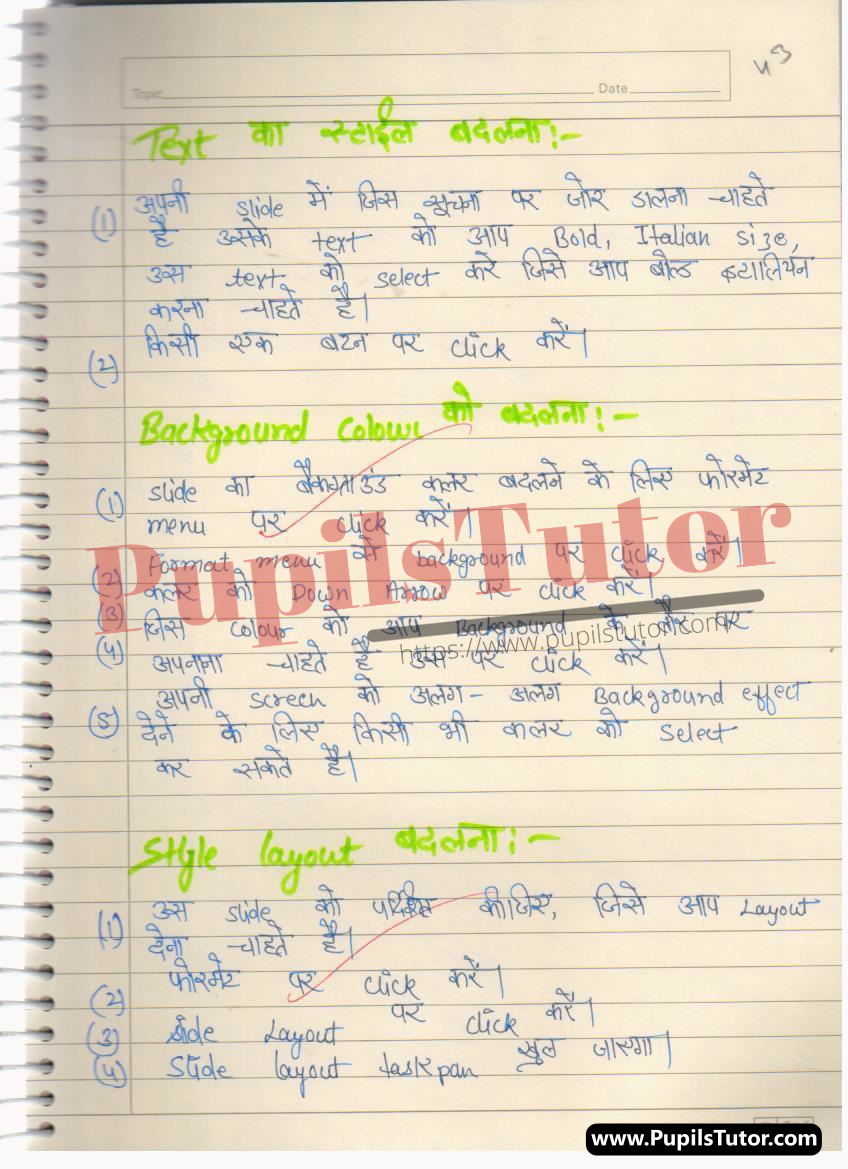 43
Topic Date
Text का स्टाईल बदलना:-
(1) अपनी slide में जिस सूचना पर जोर डालना चाहते
है उसके text को आप Bold, Italian size,
उस text को select करे जिसे आप बोल्ड इटालियन
करना चाहते है।
(2) किसी एक बटन पर click करें।
Background colour को बदलना:-
(1) slide का बैकग्राउंड कलर बदलने के लिए फोरमेट
menu पर click करें।
(2) Format menu से background पर click करें।
(3) कलर को Down Arrow पर click करें।
(4) जिस colour को आप Background के तौर पर
अपनाना चाहते है उस पर click करें।
(5) अपनी screen को अलग-अलग Background effect
देने के लिए किसी भी कलर को select
कर सकते है।
PupilsTutor
https://www.pupilstutor.com
Style layout बदलना:-
(1) उस slide को प्रदर्शित कीजिए, जिसे आप Layout
देना चाहते है।
(2) फोरमेट पर click करें।
(3) slide Layout पर click करें।
(4) Slide layout taskpan खुल जाएगा।
www.PupilsTutor.com